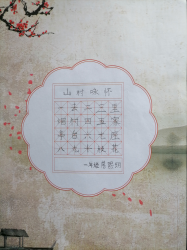 山村咏怀
一去二三里
烟村四五家
亭台六七座
八九十枝花
一年级